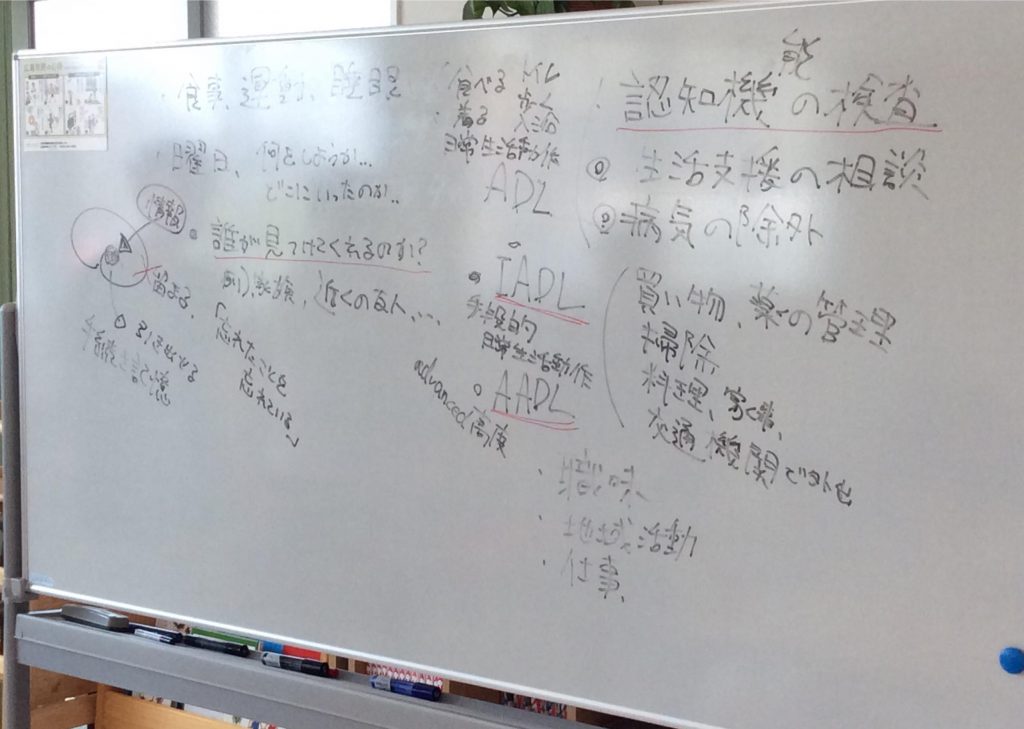 ・食事、運動、睡眠
・日曜日、何をしようか...
どこにいったのか..
情報
誰が見つけてくれるのか?
例)、家族、近くの友人、...
留まる、
引き出せる
手続き記憶
「忘れたことを
忘れている」
食べる トイレ
・着る 入浴
日常生活動作
ADL
IADL
手段的
日常生活動作
AADL
advanced「高度
・趣味
・地域活動
・仕事、
能
認知機の検査
生活支援の相談
病気の除外
買い物、薬の管理
掃除
料理、
交通機関で外出